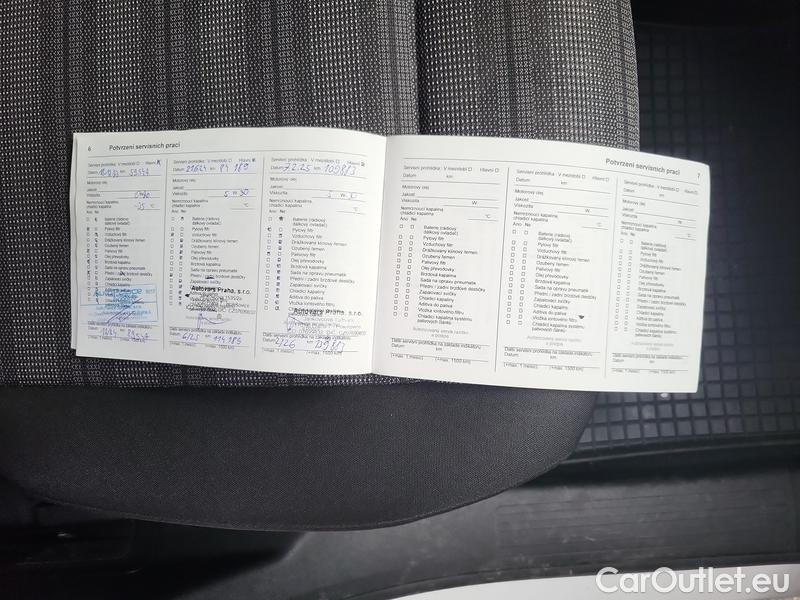 6 Potvrzení servisních prací
Servisní prohlídka: V mezidobí Hlavní
Datum km
Motorový olej
Jakost
Viskozita W
Nemrznoucí kapalina
chladicí kapalina °C
Ano Ne
Baterie (rádiový
dálkový ovladač)
Pylový filtr
Vzduchový filtr
Drážkovaný klínový řemen
Ozubený řemen
Palivový filtr
Olej převodovky
Brzdová kapalina
Sada na opravu pneumatik
Přední / zadní brzdové destičky
Zapalovací svíčky
Chladicí kapalina
Aditiva do paliva
Servisní prohlídka: V mezidobí Hlavní
Datum 21624 km 84 189
Motorový olej
Jakost
Viskozita 5 W 30
Nemrznoucí kapalina
chladicí kapalina °C
Ano Ne
Baterie (rádiový
dálkový ovladač)
Pylový filtr
Vzduchový filtr
Drážkovaný klínový řemen
Ozubený řemen
Palivový filtr
Olej převodovky
Brzdová kapalina
Sada na opravu pneumatik
Přední / zadní brzdové destičky
Zapalovací svíčky
Autovars Praha, s.r.o.
Další servisní prohlídka na základě indikátoru
Datum 6/25 km 114 189
(+max. 1 měsíc) (+max. 1500 km)
Servisní prohlídka: V mezidobí Hlavní
Datum 7.2.25 km 109883
Motorový olej
Jakost
Viskozita 5 W 30
Nemrznoucí kapalina
chladicí kapalina °C
Ano Ne
Baterie (rádiový
dálkový ovladač)
Pylový filtr
Vzduchový filtr
Drážkovaný klínový řemen
Ozubený řemen
Palivový filtr
Olej převodovky
Brzdová kapalina
Sada na opravu pneumatik
Přední / zadní brzdové destičky
Zapalovací svíčky
Chladicí kapalina
Aditiva do paliva
Autovars Praha, s.r.o.
Další servisní prohlídka na základě indikátoru
Datum 2/26 km 139883
(+max. 1 měsíc) (+max. 1500 km)
Potvrzení servisních prací 7
Servisní prohlídka: V mezidobí Hlavní
Datum km
Motorový olej
Jakost
Viskozita W
Nemrznoucí kapalina
chladicí kapalina °C
Ano Ne
Baterie (rádiový
dálkový ovladač)
Pylový filtr
Vzduchový filtr
Drážkovaný klínový řemen
Ozubený řemen
Palivový filtr
Olej převodovky
Brzdová kapalina
Sada na opravu pneumatik
Přední / zadní brzdové destičky
Zapalovací svíčky
Chladicí kapalina
Aditiva do paliva
Vložka iontového filtru
Chladicí kapalina systému
palivových článků
Autorizovaný servis razítko
a podpis
Další servisní prohlídka na základě indikátoru
Datum km
(+max. 1 měsíc) (+max. 1500 km)
Servisní prohlídka: V mezidobí Hlavní
Datum km
Motorový olej
Jakost
Viskozita W
Nemrznoucí kapalina
chladicí kapalina °C
Ano Ne
Baterie (rádiový
dálkový ovladač)
Pylový filtr
Vzduchový filtr
Drážkovaný klínový řemen
Ozubený řemen
Palivový filtr
Olej převodovky
Brzdová kapalina
Sada na opravu pneumatik
Přední / zadní brzdové destičky
Zapalovací svíčky
Chladicí kapalina
Aditiva do paliva
Vložka iontového filtru
Chladicí kapalina systému
palivových článků
Autorizovaný servis razítko
a podpis
Další servisní prohlídka na základě indikátoru
Datum km
(+max. 1 měsíc) (+max. 1500 km)
Servisní prohlídka: V mezidobí Hlavní
Datum km
Motorový olej
Jakost
Viskozita W
Nemrznoucí kapalina
chladicí kapalina °C
Ano Ne
Baterie (rádiový
dálkový ovladač)
Pylový filtr
Vzduchový filtr
Drážkovaný klínový řemen
Ozubený řemen
Palivový filtr
Olej převodovky
Brzdová kapalina
Sada na opravu pneumatik
Přední / zadní brzdové destičky
Zapalovací svíčky
Chladicí kapalina
Aditiva do paliva
Vložka iontového filtru
Chladicí kapalina systému
palivových článků
Autorizovaný servis razítko
a podpis
Další servisní prohlídka na základě indikátoru
Datum km
(+max. 1 měsíc) (+max. 1500 km)
CarOutlet.eu